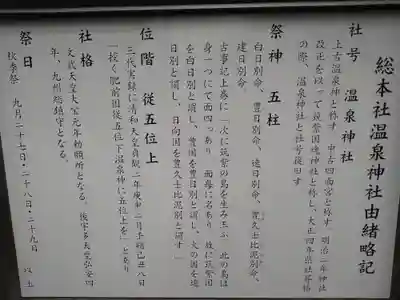 総本社温泉神社由緒略記
社号 温泉神社
上古温泉神と称す 中古四面宮と称す 明治二年神社
改正を以って筑紫国魂神社と称し、大正四年県社昇格
の際、温泉神社と社号復旧す
祭神 五柱
白日別命、豊日別命、速日別命、豊久士比泥別命、
建日別命、
古事記上巻に「次に筑紫の島を生み玉ふ 此の島は
身一つにて面四つあり 面毎に名あり 故に筑紫国
を白日別と謂し、豊国を豊日別と謂し、火の国を速
日別と謂し、日向国を豊久士比泥別と謂す」
位階 従五位上
三代実録に清和天皇貞観二年庚申二月壬朔己丑八日
「授く肥前国従五位下温泉神に五位上を」とあり
社格
文武天皇大宝元年勅願所となる。後宇多天皇弘安四
年、九州総鎮守となる。
祭日
秋季祭 九月二十七日・二十八日・二十九日
以上